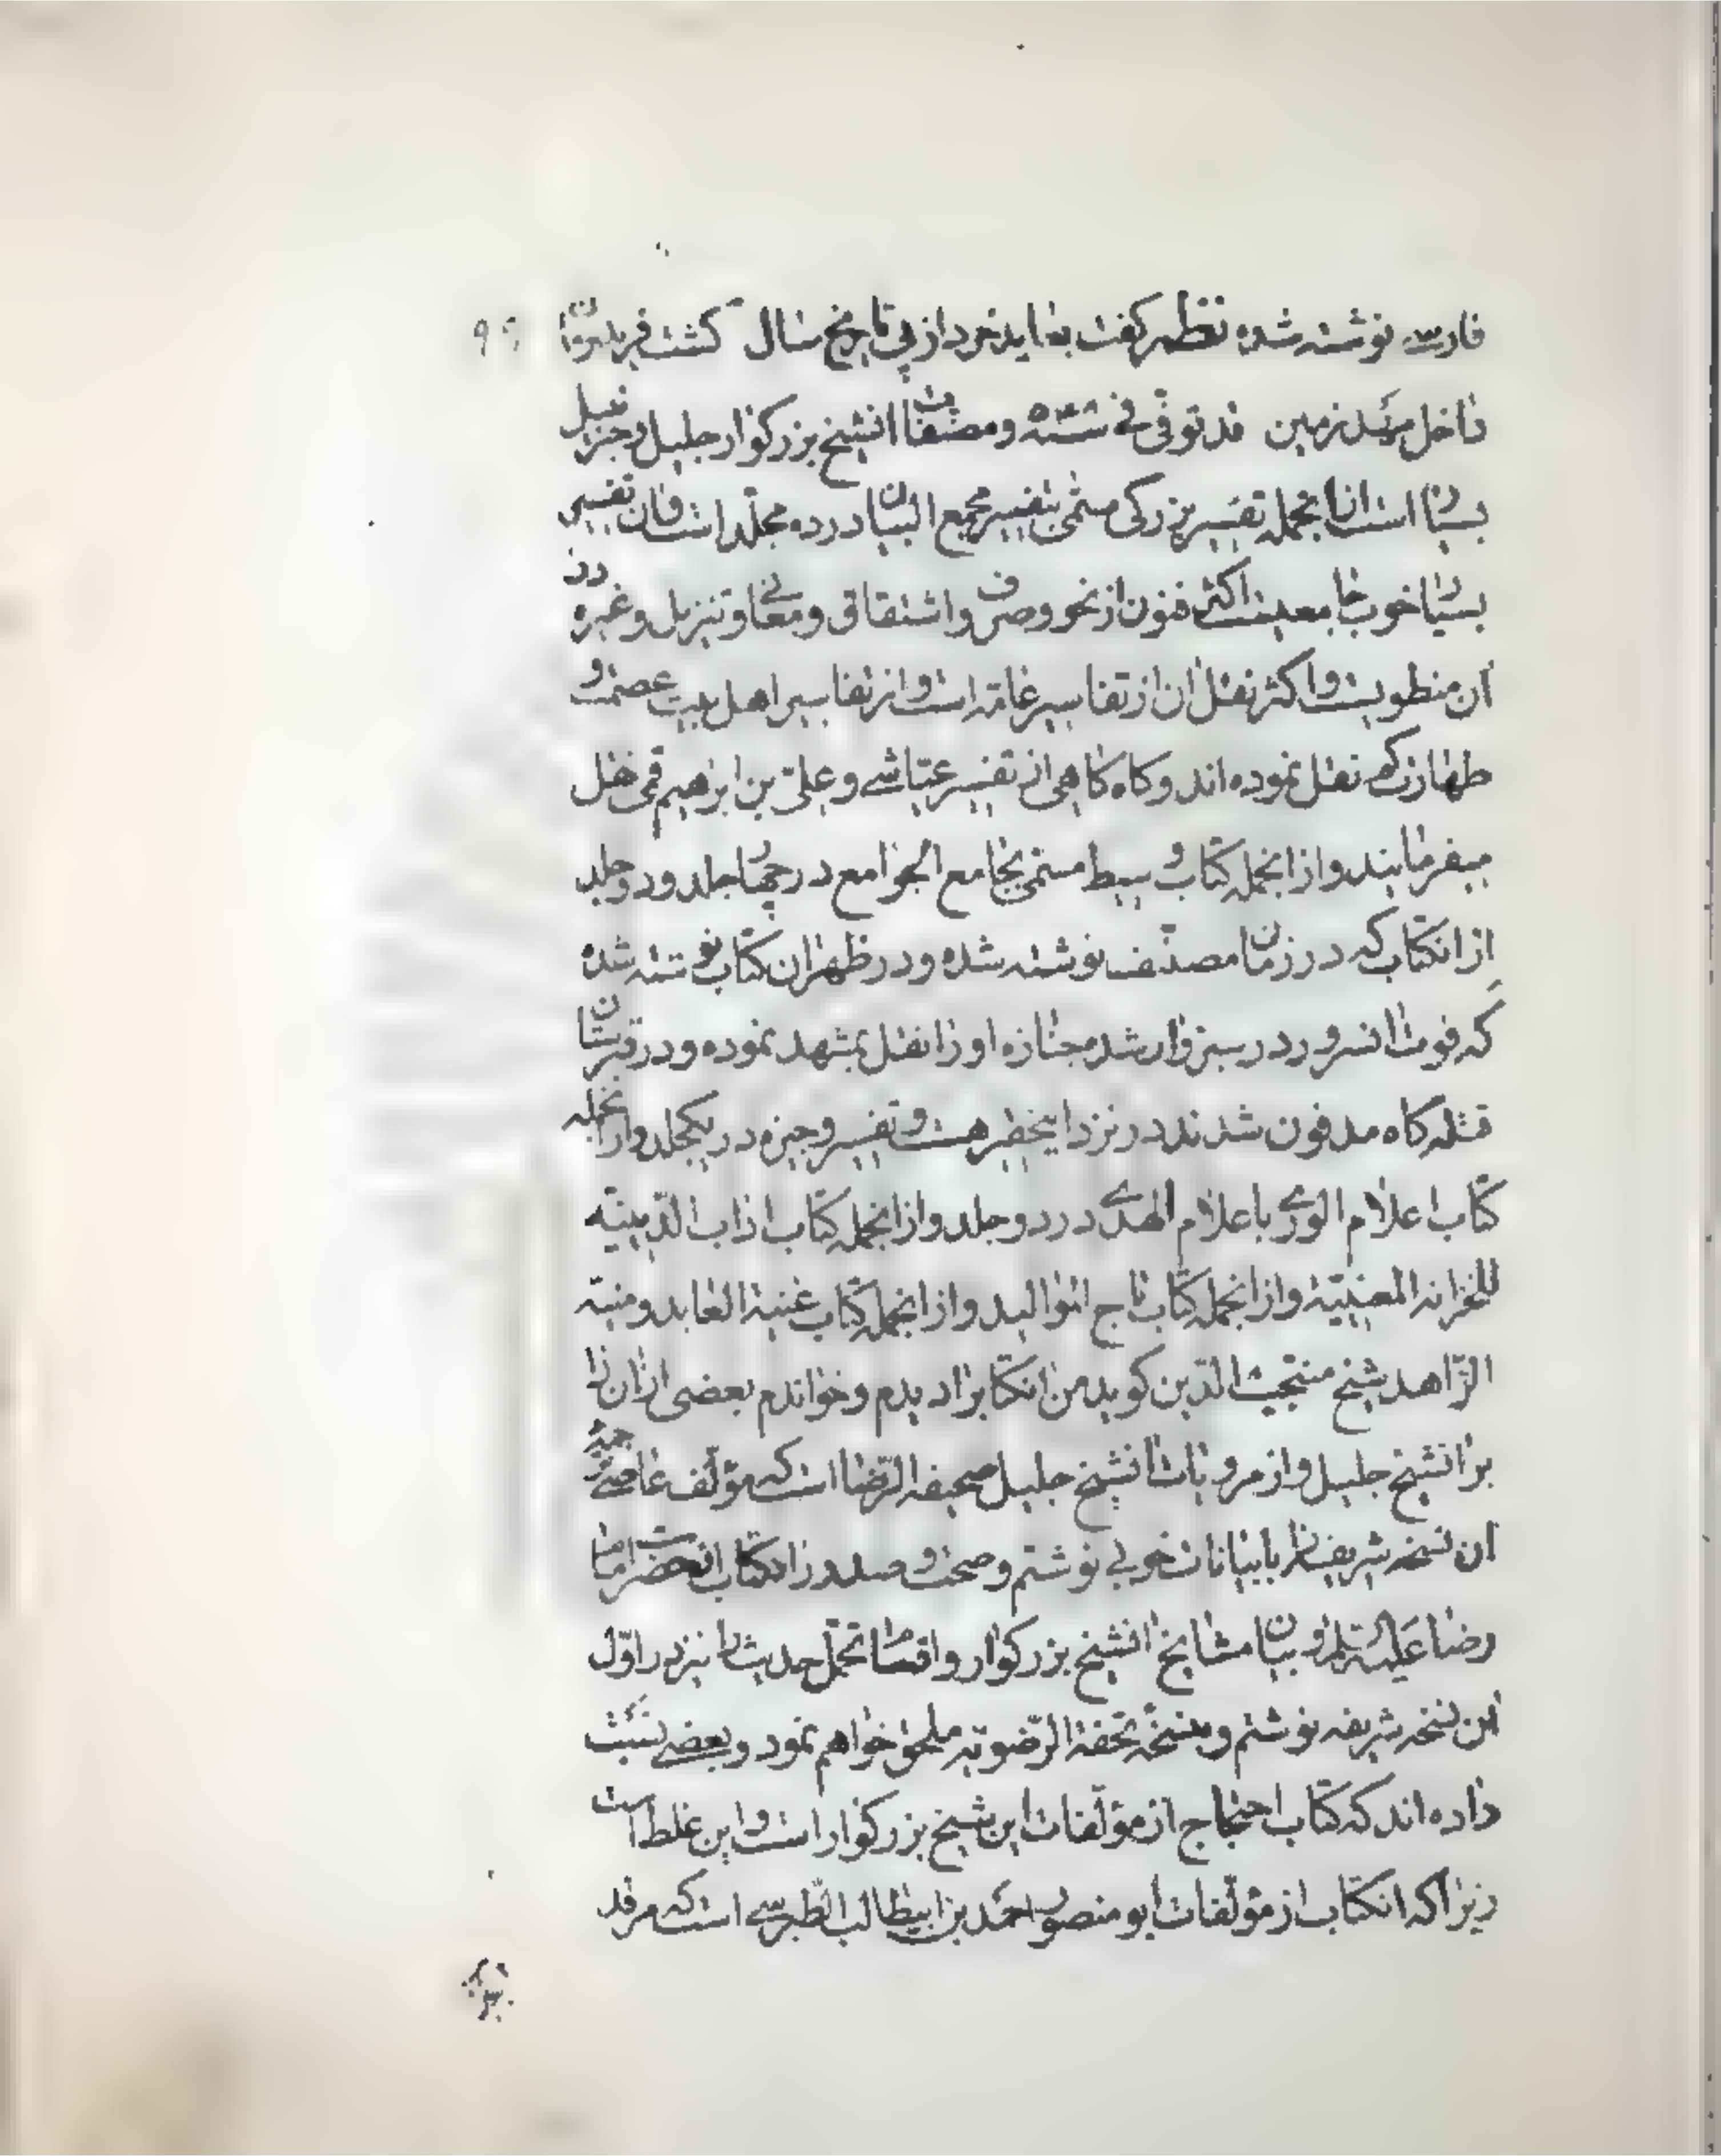 فارسی نوشته شده نظم کفت بغاید خرد از پی تاریخ سال کشت فریدون
داخل مرئد زمین قد توفّی فی سنه ومصنفات انشیخ بزرکوار جلیل وجزیل
بسیار است ازانجمله تفسیر بزرکی مسمّی بتفسیر مجمع البیان در ده مجلّد است وان تفسیر
بسیار خوب جامعیست اکثر فنون از نحو وصرف واشتقاق ومعانی وتنزیل وغیره در
ان منطویست واکثر نقل ان از تفاسیر عامّه است واز تفاسیر اهل بیت عصمت و
طهارت کم نقل نموده اند وکاه کاهی از تفسیر عیّاشی وعلیّ بن ابرهیم قمی نقل
میفرمایند وازانجمله کتاب وسیط مسمّی بجامع الجوامع در چهار جلد ودو جلد
از انکتاب که در زمان مصنّف نوشته شده ودر ظهر ان کتاب نوشته شده
که فوت انسرور در سبزوار شد جنازه او را نقل بمشهد نموده ودر قبرستان
قتله کاه مدفون شدند در نزد اینحقیر هست وتفسیر وجیزه در یکجلد وازانجمله
کتاب اعلام الوری باعلام الهدی در دو جلد وازانجمله کتاب اداب الدّینیّه
للخزانه المعینیّة وازانجمله کتاب تاج الموالید وازانجمله کتاب غنیة العابد ومنیة
الزّاهد شیخ منتجب الدّین کوید من انکتابرا دیدم وخواندم بعضی از ان را
بر انشیخ جلیل واز مرویات انشیخ جلیل صحیفه الرّضا است که مؤلّف عاصی
ان نسخه شریفه را با بیانات خوبی نوشتم وصحت وصدور انکتاب از حضرت امام
رضا علیه السلم وبیان مشایخ انشیخ بزرکوار واقسام تحمّل حدیث را نیز در اوّل
این نسخه شریفه نوشتم وبنسخه تحفة الرّضویّه ملحق خواهم نمود وبعضی نسبت
داده اند که کتاب احتجاج از مؤلّفات این شیخ بزرکوار است واین غلط است
زیرا که انکتاب از مؤلّفات ابو منصور احمد بن ابیطالب الطّبرسی است که مرقد